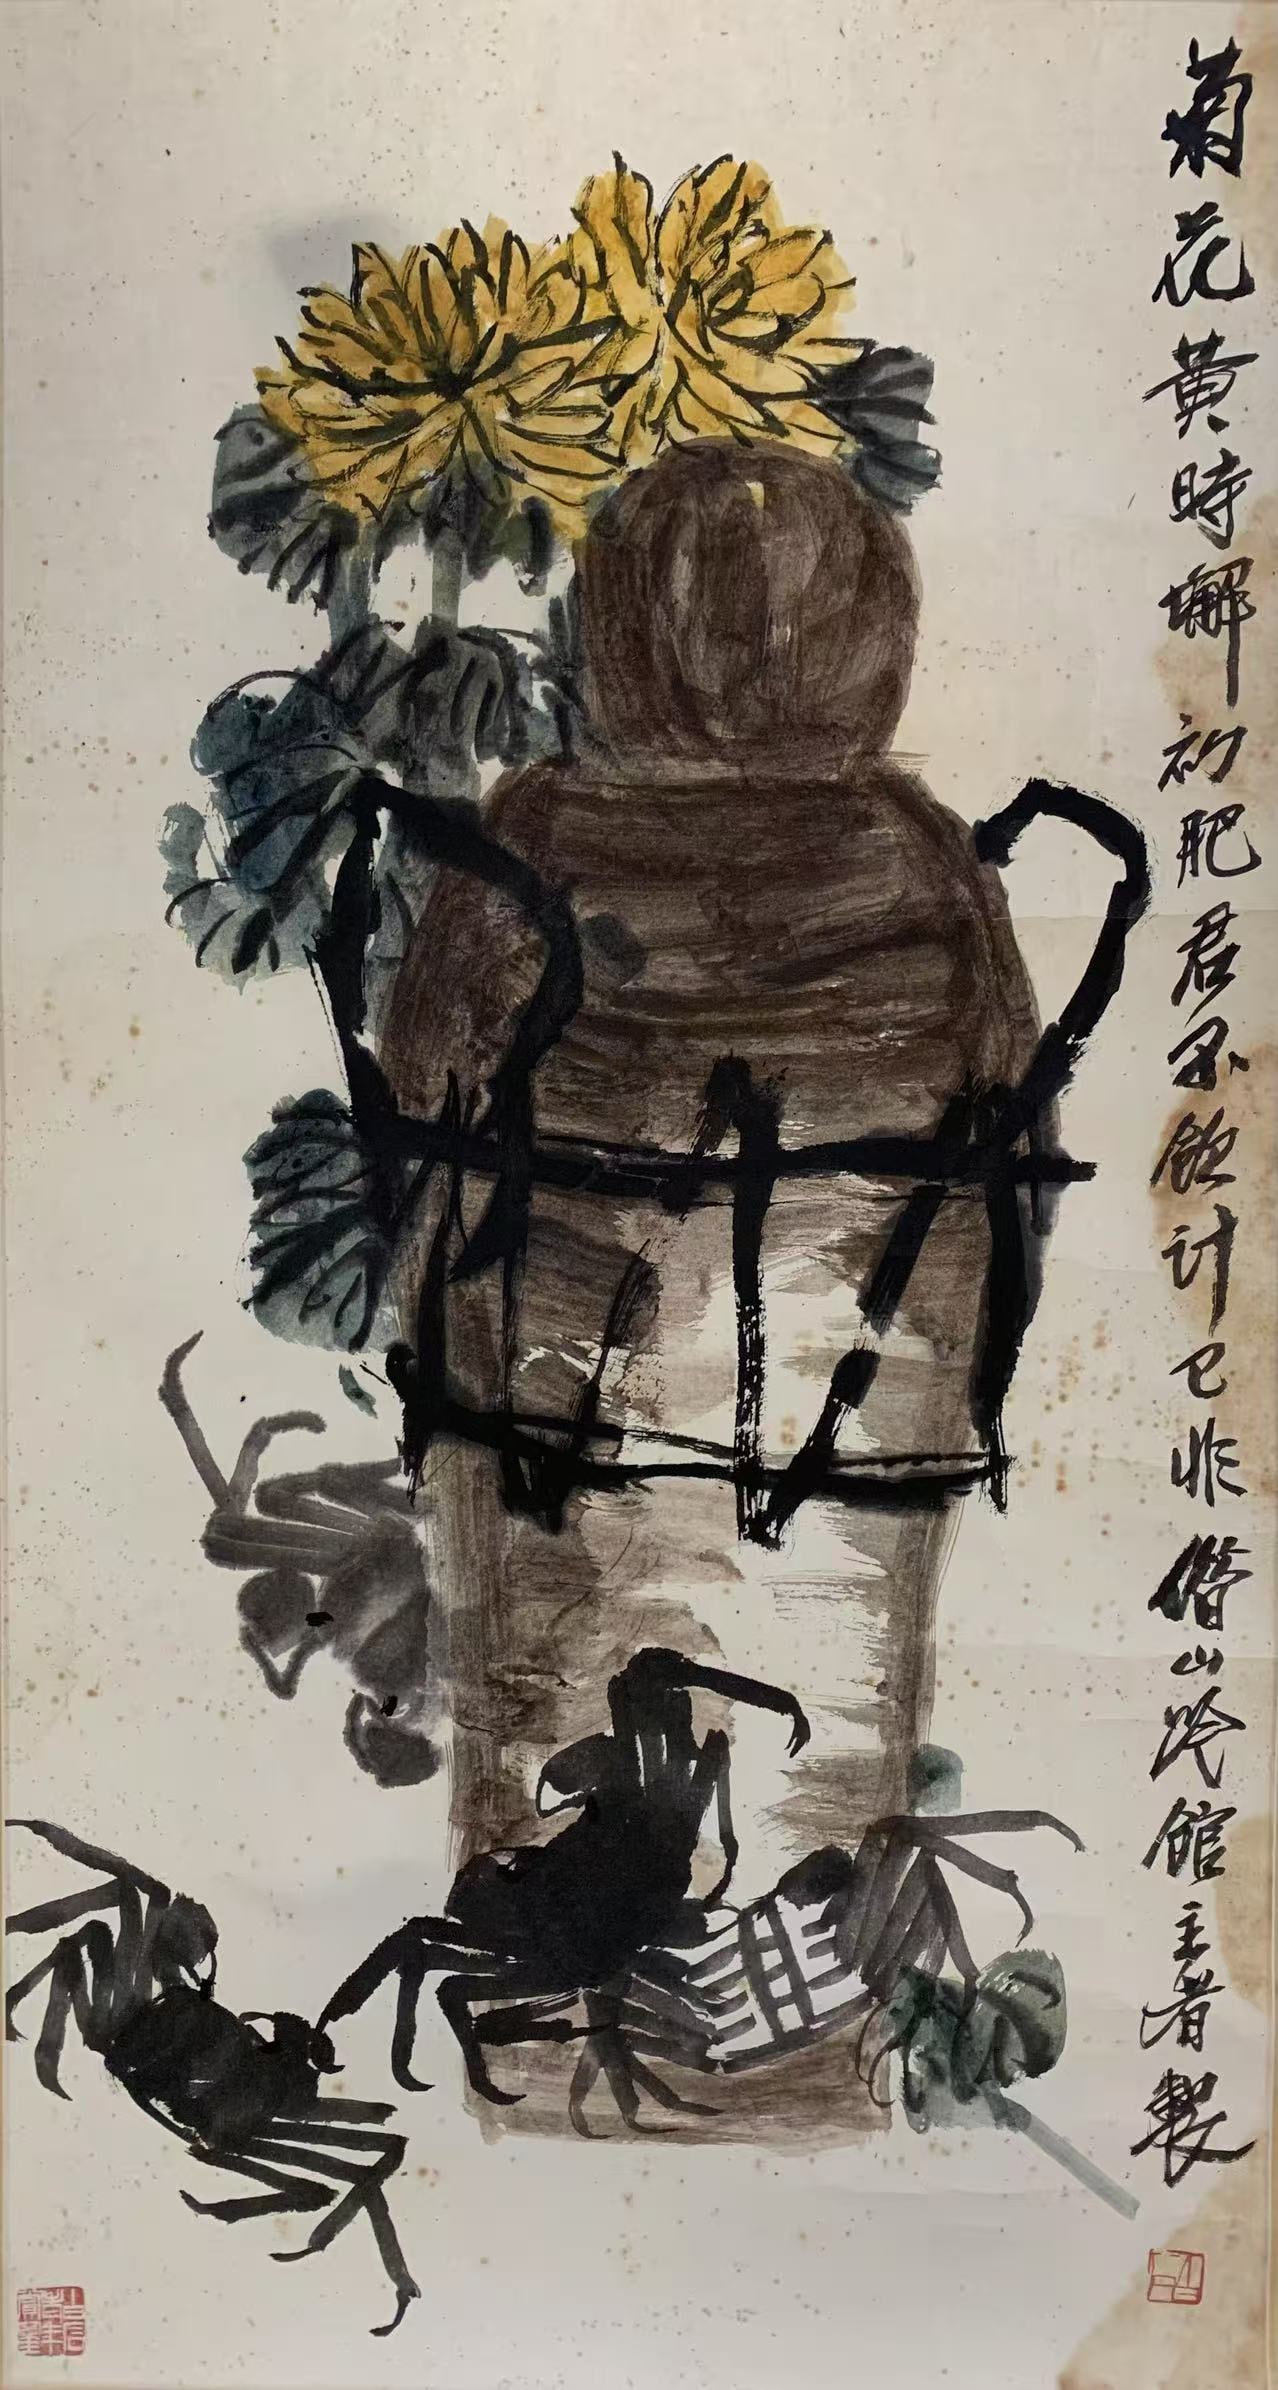 菊花黄時蠏初肥君不飲計已非借山吟館主者製